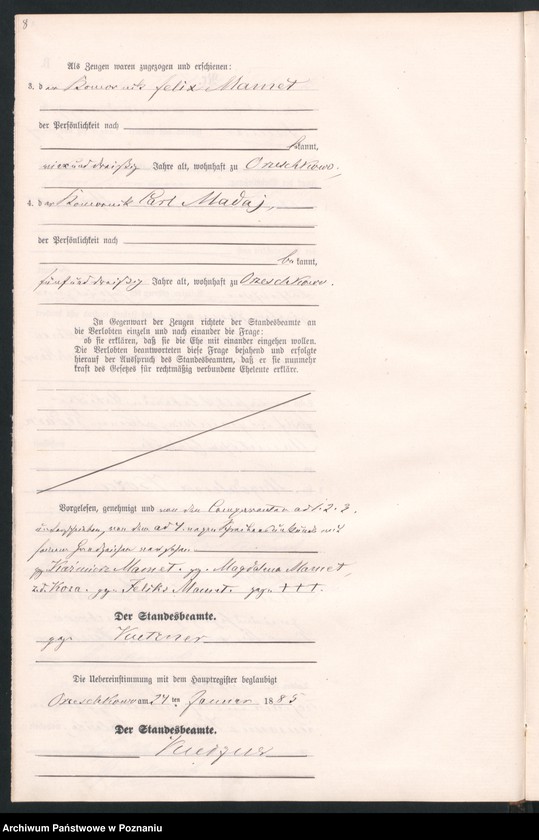 8
Als Zeugen waren zugezogen und erschienen:
3. der Komornik Felix Mamet
der Persönlichkeit nach
bekannt,
vierunddreißig Jahre alt, wohnhaft zu Orzeschkowo.
4. der Komornik Karl Madaj,
der Persönlichkeit nach
bekannt,
fünfunddreißig Jahre alt, wohnhaft zu Orzeschkowo.
In Gegenwart der Zeugen richtete der Standesbeamte an
die Verlobten einzeln und nach einander die Frage:
ob sie erklären, daß sie die Ehe mit einander eingehen wollen.
Die Verlobten beantworteten diese Frage bejahend und erfolgte
hierauf der Ausspruch des Standesbeamten, daß er sie nunmehr
kraft des Gesetzes für rechtmäßig verbundene Eheleute erkläre.
Vorgelesen, genehmigt und von den Comparenten ad 1. 2. 3.
unterschrieben, von dem ad 4. wegen Schreibensunkunde mit
seinem Handzeichen versehen.
gg. Kaźmierz Mamet. gg. Magdalena Mamet,
Koza. gg. Feliks Mamet. gg. +++.
Der Standesbeamte.
gg. Kutzner
Die Uebereinstimmung mit dem Hauptregister beglaubigt
Orzeschkowo am 24 ten Januar 1885
Der Standesbeamte.
Kutzner
Archiwum Państwowe w Poznaniu